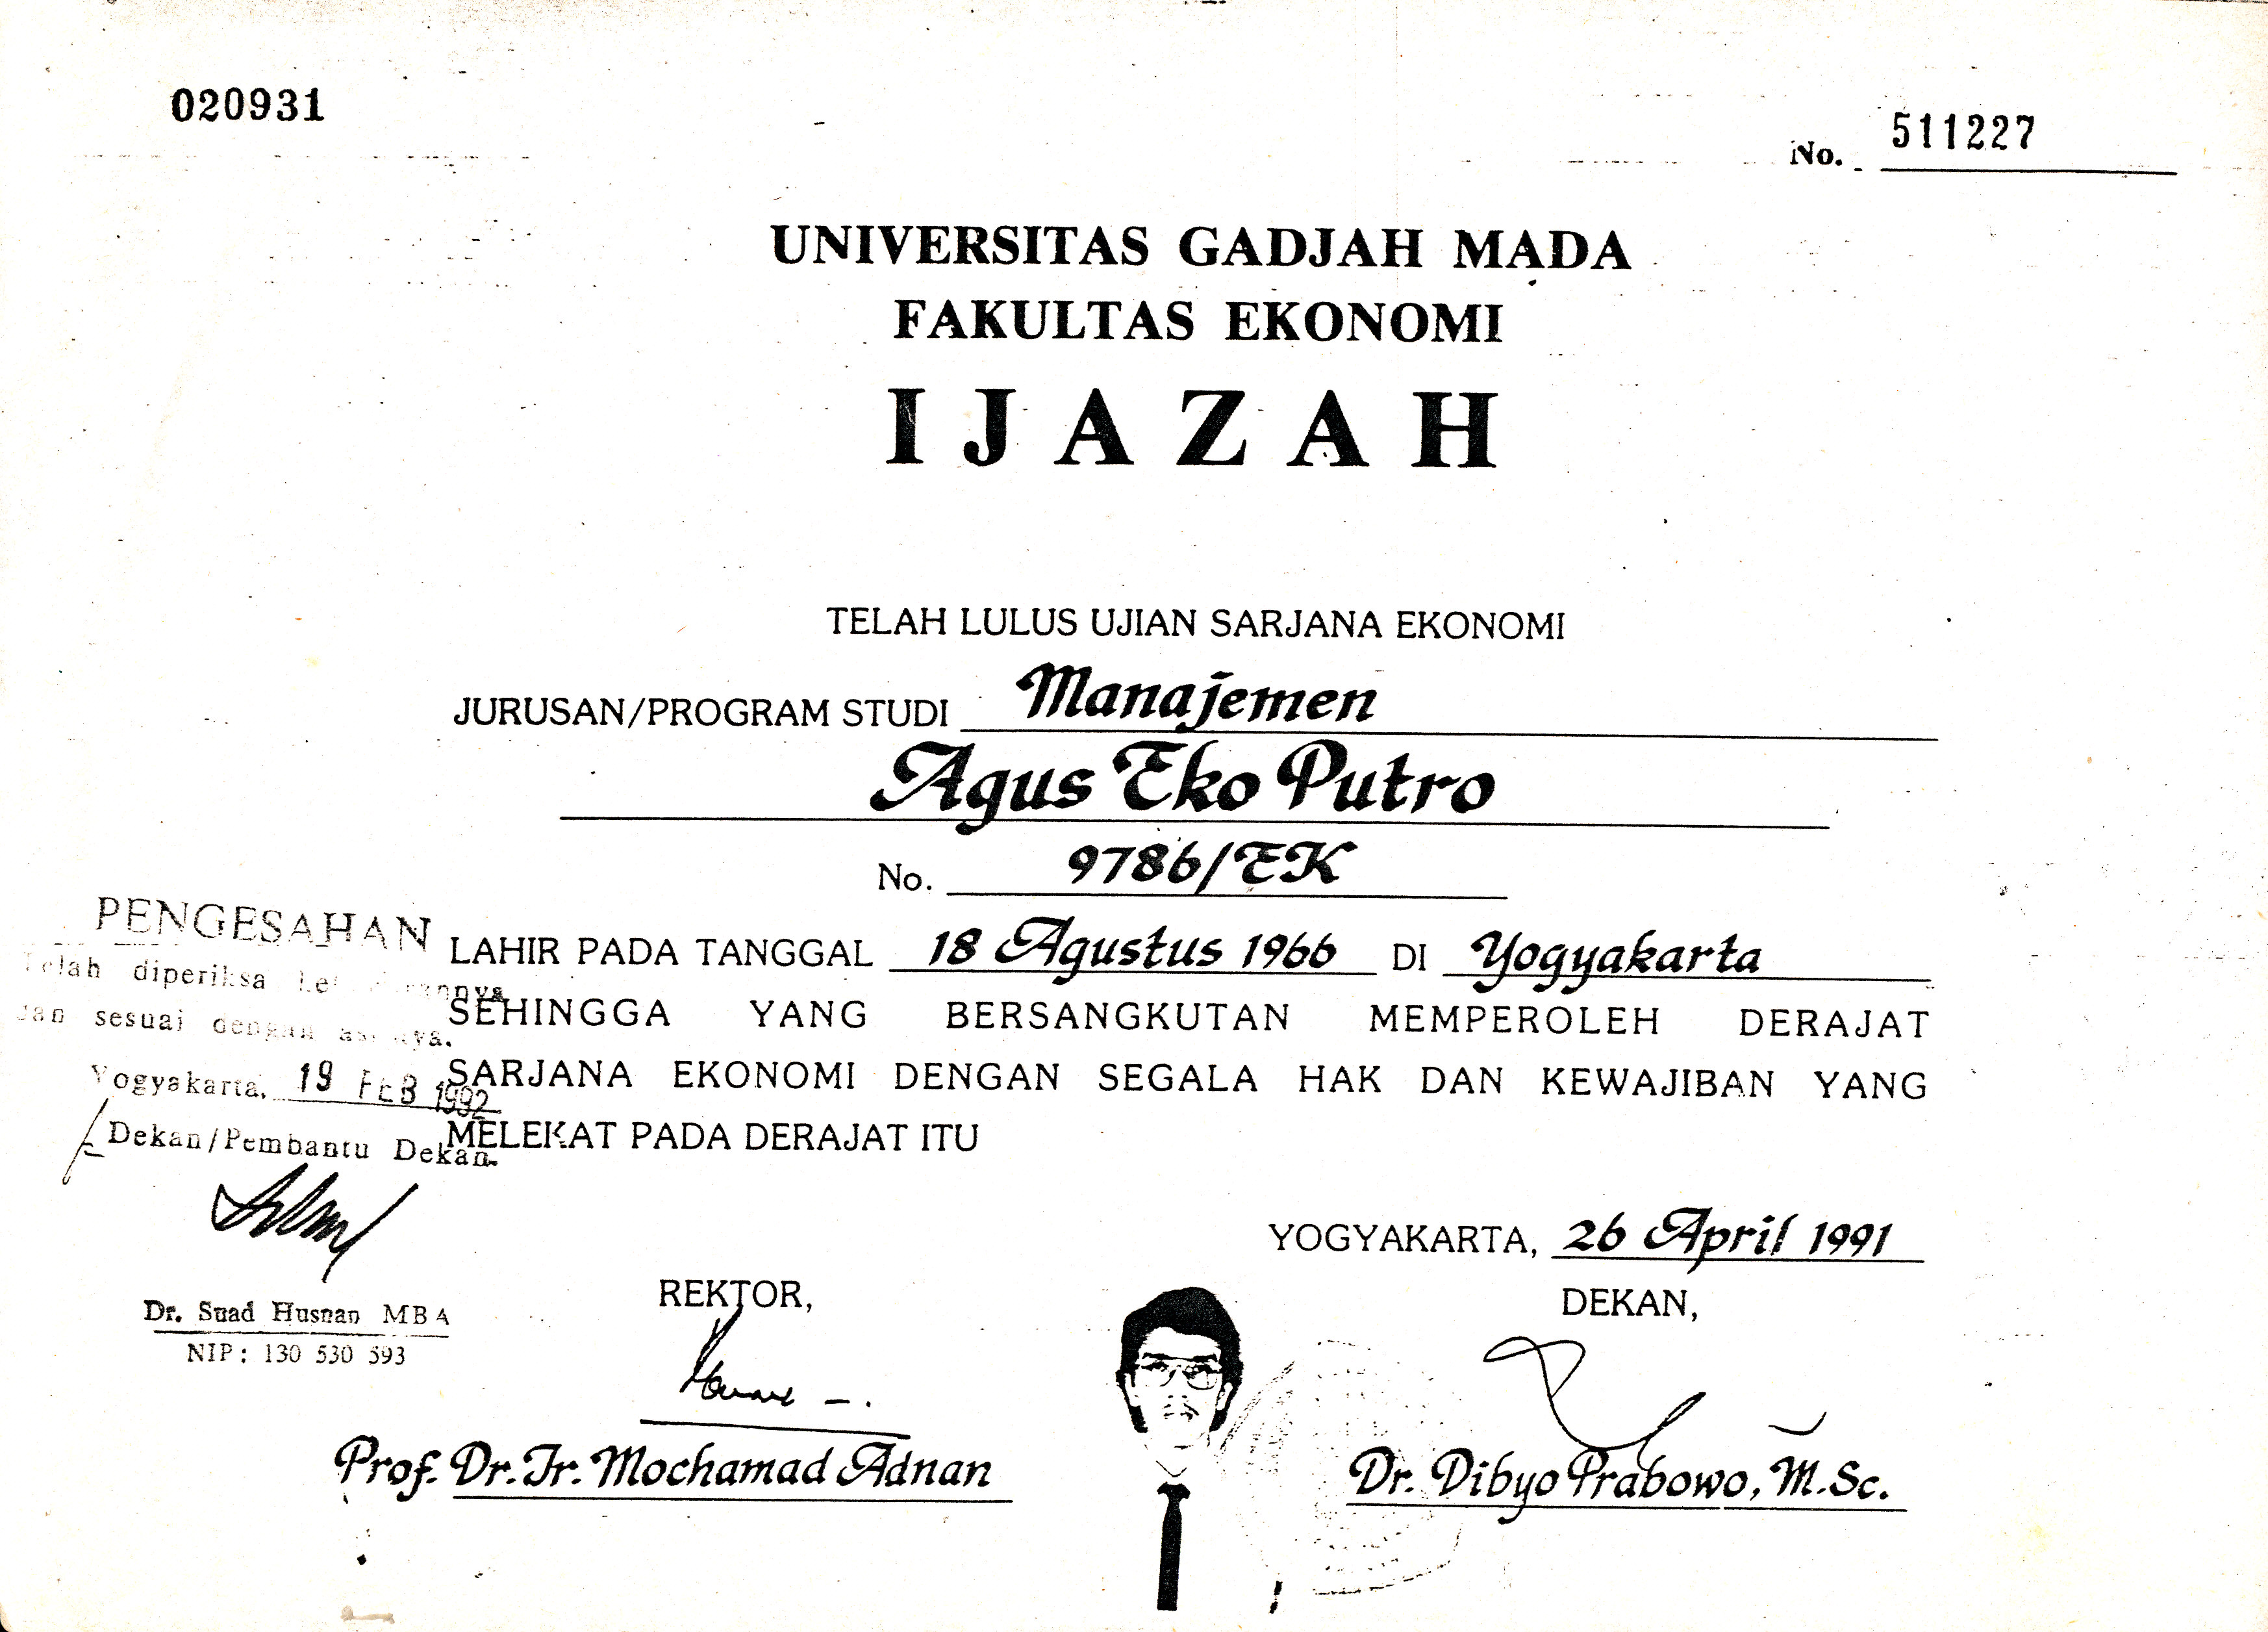 020931
No. 511227
UNIVERSITAS GADJAH MADA
FAKULTAS EKONOMI
IJAZAH
TELAH LULUS UJIAN SARJANA EKONOMI
JURUSAN/PROGRAM STUDI Manajemen
Agus Eko Putro
No. 9786/EK
LAHIR PADA TANGGAL 18 Agustus 1966 DI Yogyakarta
SEHINGGA YANG BERSANGKUTAN MEMPEROLEH DERAJAT
SARJANA EKONOMI DENGAN SEGALA HAK DAN KEWAJIBAN YANG
MELEKAT PADA DERAJAT ITU
PENGESAHAN
Telah diperiksa
dan sesuai dengan
Yogyakarta, 19 FEB 1992
Dekan/Pembantu Dekan.
Dr. Suad Husnan MBA
NIP: 130 530 593
YOGYAKARTA, 26 April 1991
REKTOR,
Prof. Dr. Ir. Mochamad Adnan
DEKAN,
Dr. Dibyo Prabowo, M.Sc.